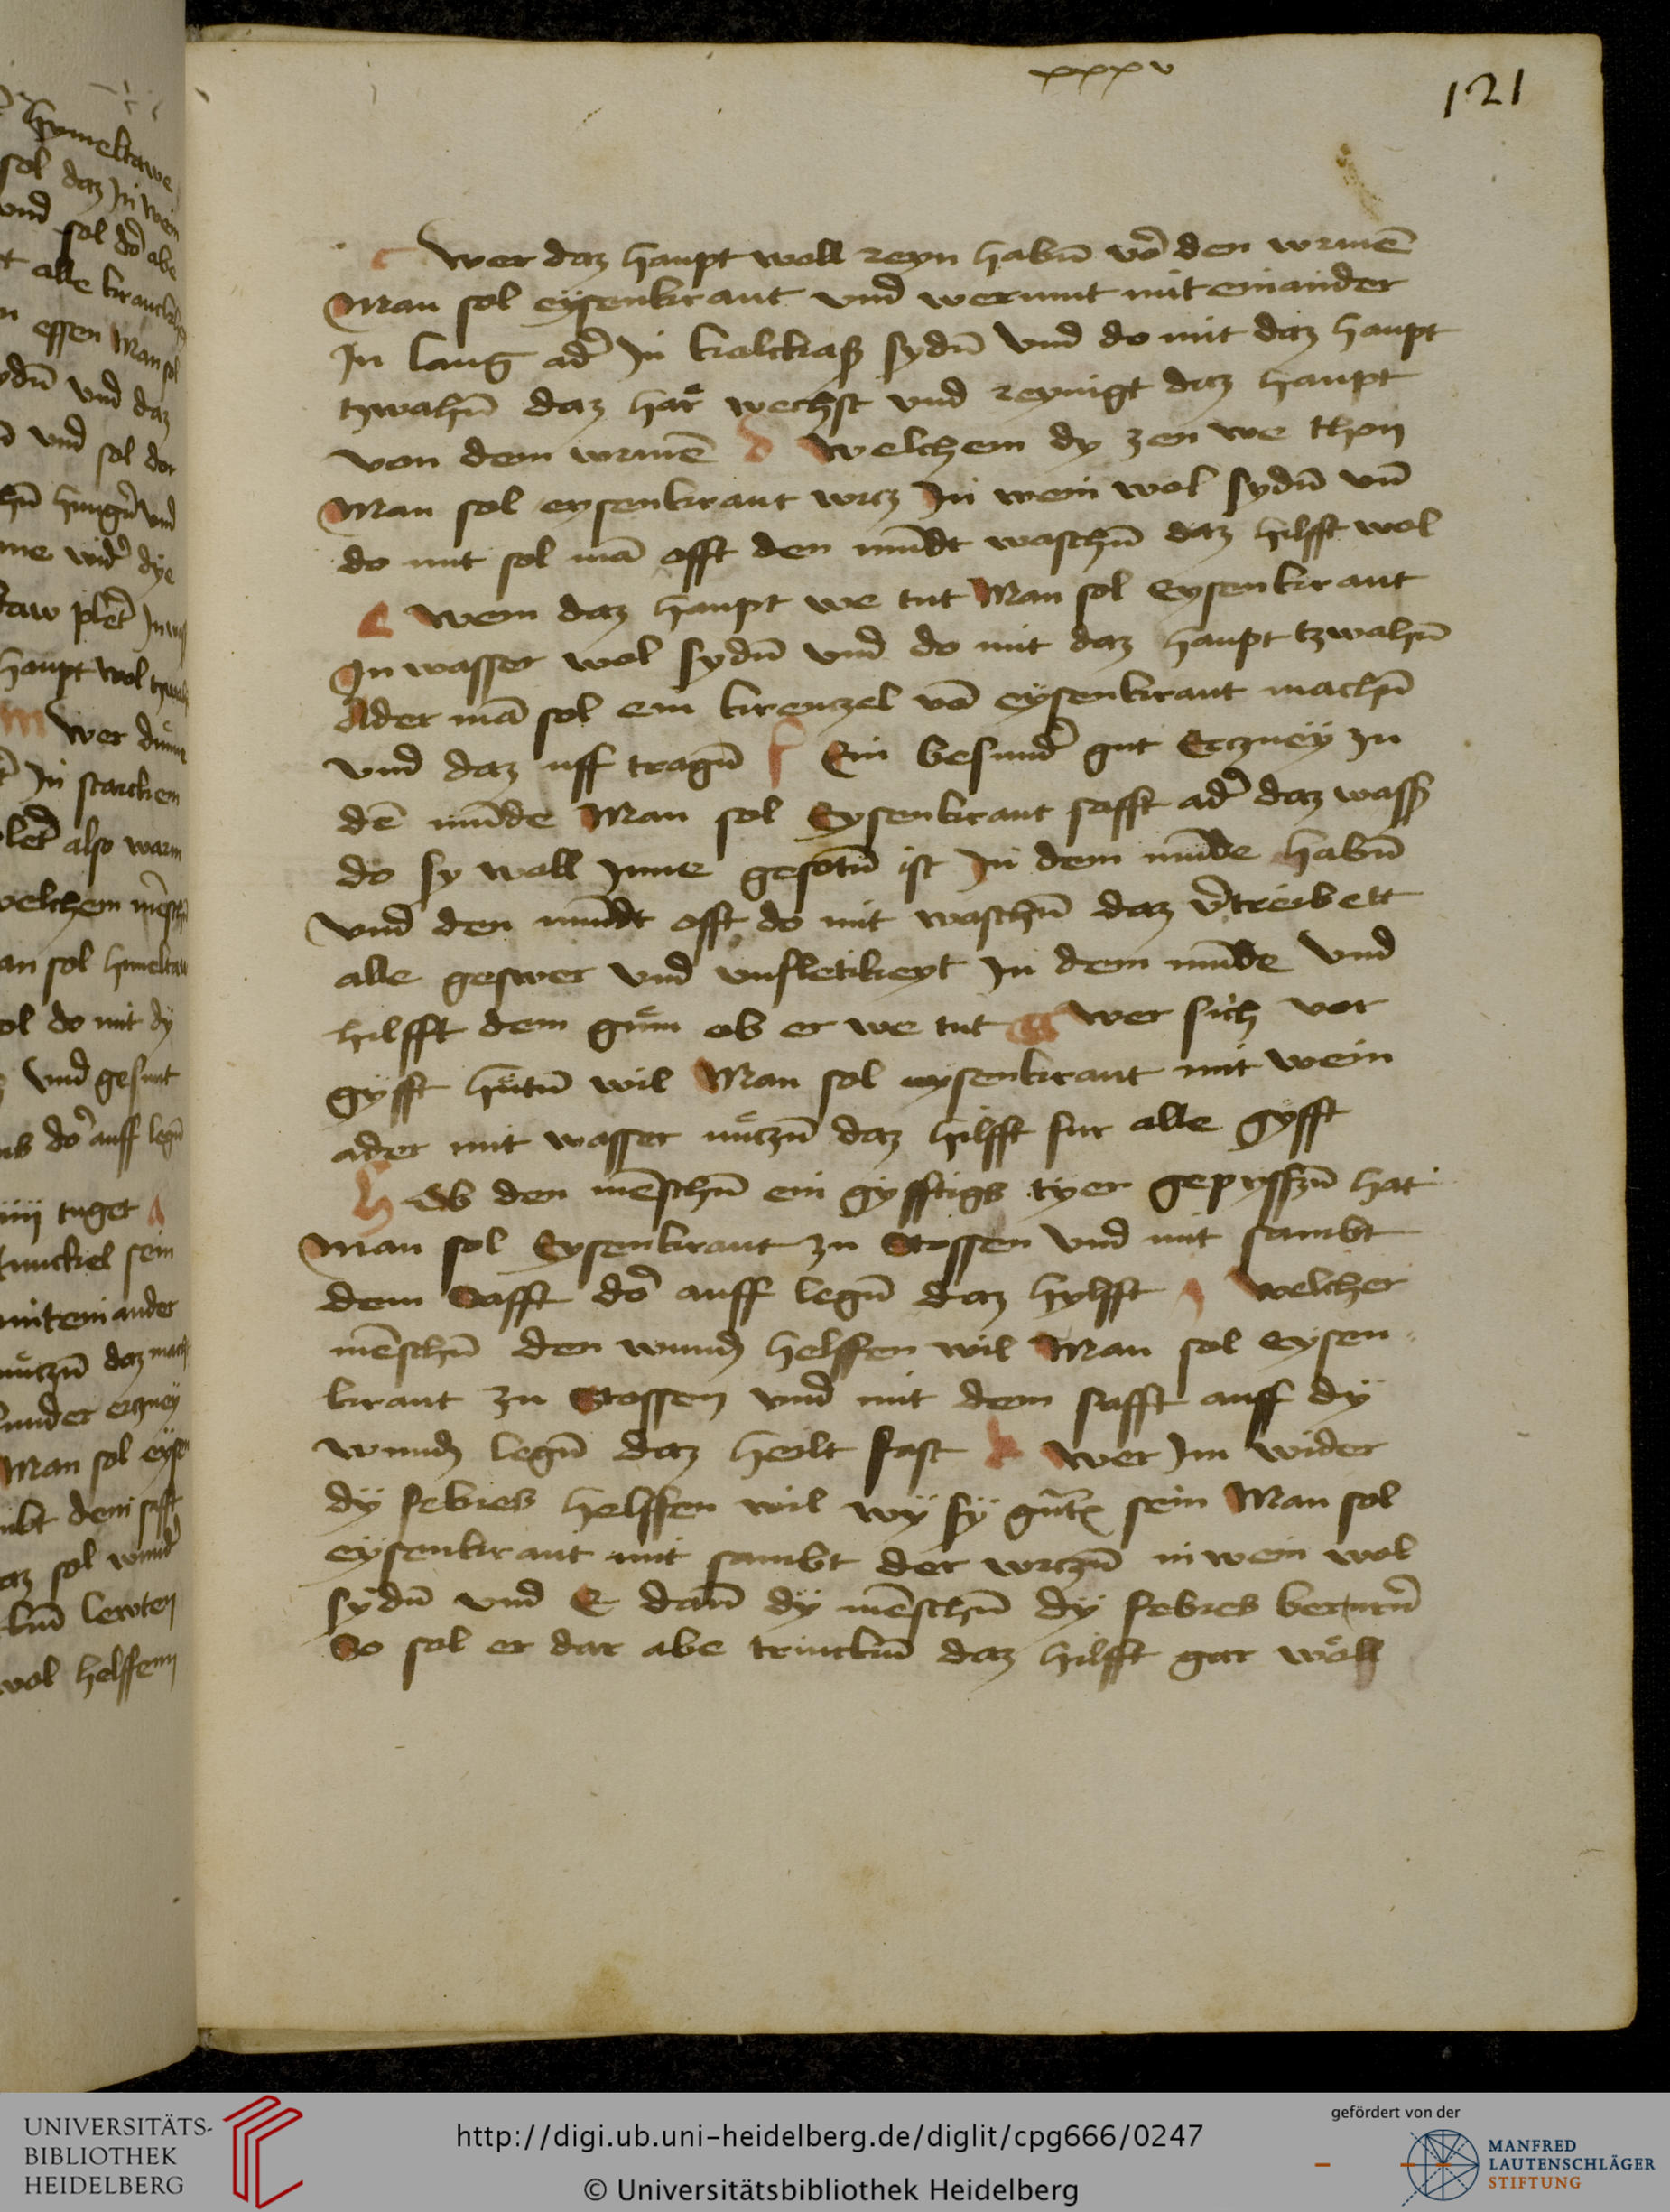 xxxv
121
c Wer daz haupt woll reyn habñ vō den wrmē
Man sol eÿsenkraut vnd wermut mit einander
In laug ad̉ In kalckaß sydñ vnd do mit daz haupt
tzwahñ daz har wechst vnd reynigt daz haupt
von dem wrmē d Welchem dy zen we thon
Man sol eysenkraut wrcz In wein wol sydñ vñ
do mit sol mā offt den mūdt waschñ daz hilfft wol
e Wem daz haupt we tut Man sol Eysenkraut
In wasser wol sydñ vnd do mit daz haupt tzwahñ
Ader mā sol ein krenczel vō eÿsenkraut machñ
vnd daz uff tragñ f Ein besund̉ gut Erczneÿ zu
dē mūde Man sol Eysenkraut safft ad̉ daz wasß
do sy woll Inne gesotñ ist In dem mūde habñ
vnd den mūdt offt do mit waschñ daz v̉treibett
alle geswer vnd vnfletikeyt In dem mūde vnd
hilfft dem gům ob er we tut g Wer sich vor
gyfft hütñ wil Man sol eysenkraut mit wein
ader mit wasser nůczñ daz hilfft fur alle gÿfft
h Ob den mēschñ ein gyfftigs tÿer gepyssñ hat
Man sol Eysenkraut zu Stossen vnd mit sambt
dem Safft do̓ auff legñ daz hylfft j Welcher
mēschñ den wund helffen wil Man sol eysen
kraut zu Stossen vnd mit dem safft auff dÿ
wund legñ daz heilt fast k Wer Im wider
dÿ febres helffen wil wÿ sÿ sein Man sol
eÿsenkraut mit sambt der wrczñ in wein wol
sÿdñ vnd E dañ dÿ mēschñ dÿ febres
So sol er dar abe trinckñ daz hilfft gar wöll
hymeltawe
sol daz In wein
vnd sol do̓ abe
alle kranck
essen Man sol
vnd daz
vnd sol der
hungñ vnd
wid̉ dÿe
plet̉ In
haupt wol
m Wer
In starckem
plet̉ also warm
welchem
man sol
sol do mit dÿ
vnd gesunt
do̓ auff legñ
iiij tuget
tunckel sein
mit einander
nůczñ daz
ercznëy
Man sol
dem safft
daz sol
lewten
wol helffenn
UNIVERSITÄTS-
BIBLIOTHEK
HEIDELBERG
http://digi.ub.uni-heidelberg.de/diglit/cpg666/0247
© Universitätsbibliothek Heidelberg
gefördert von der
MANFRED
LAUTENSCHLÄGER
STIFTUNG